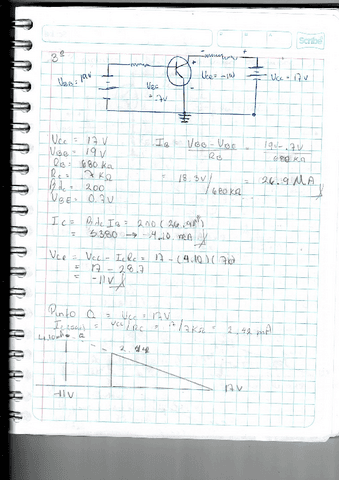 Scribe
3º
VBB = 19V
VBE = .7V
VCE = -11V
VCC = 17V
VCC = 17V
VBB = 19V
RB = 680 KΩ
RC = 7 KΩ
βdc = 200
VBE = 0.7V
IB = VBB - VBE / RB = 19V - .7V / 680 KΩ
= 18.3V / 680KΩ = 26.9 MA
IC = βdc IB = 200 (26.9
= 5380 → 4.10 mA
VCE = VCC - ICRC = 17 - (4.10)(7
= 17 - 28.7
= -11V
Punto Q = VCC = 17V
IC(sat) = VCC/RC = 17/7KΩ = 2.42 mA
Q
-11V
17V